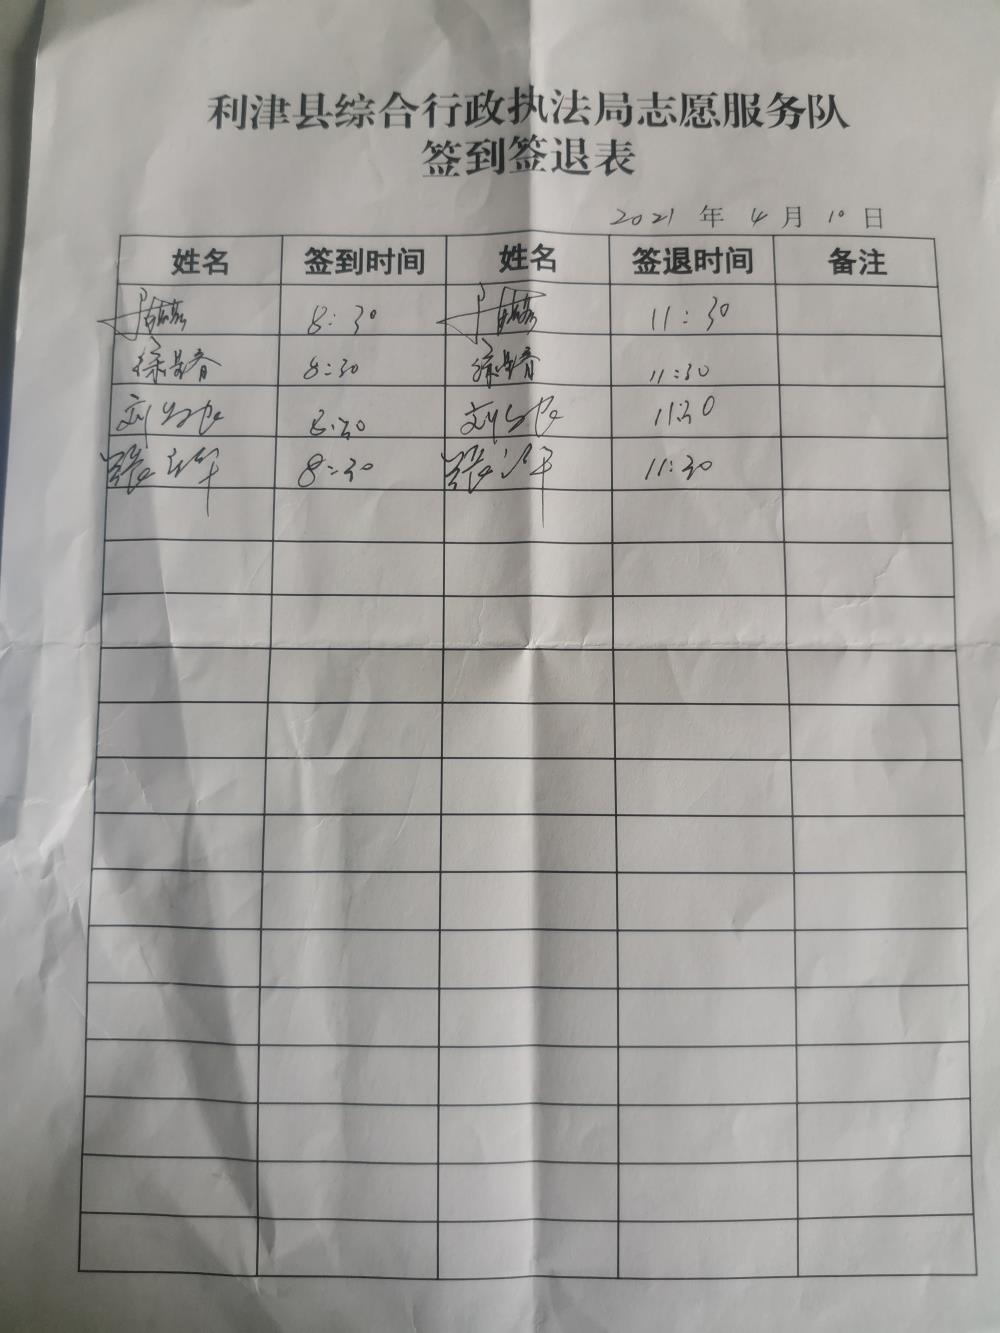 利津县综合行政执法局志愿服务队
签到签退表
2021 年 4 月 10 日
姓名 签到时间 姓名 签退时间 备注
8:30 11:30
徐 春 8:30 徐 春 11:30
刘 8:30 刘 11:30
张 8:30 张 11:30